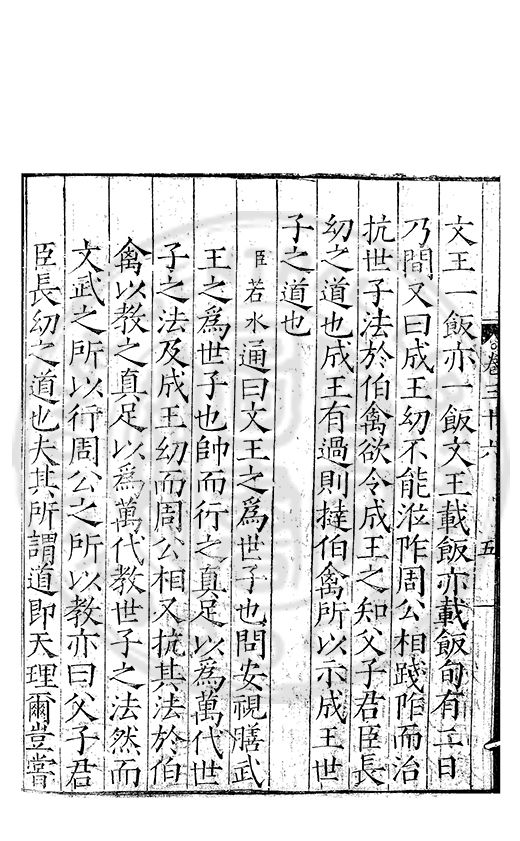 卷三十六
五
文王一飯亦一飯文王載飯亦載飯旬有二日
乃間又曰成王㓜不能涖阼周公相踐阼而治
抗世子法於伯禽欲令成王之知父子君臣長
㓜之道也成王有過則撻伯禽所以示成王世
子之道也
臣若水通曰文王之爲世子也問安視膳武
王之爲世子也帥而行之真足以爲萬代世
子之法及成王㓜而周公相又抗其法於伯
禽以教之真足以爲萬代教世子之法然而
文武之所以行周公之所以教亦曰父子君
臣長㓜之道也夫其所謂道即天理爾豈嘗